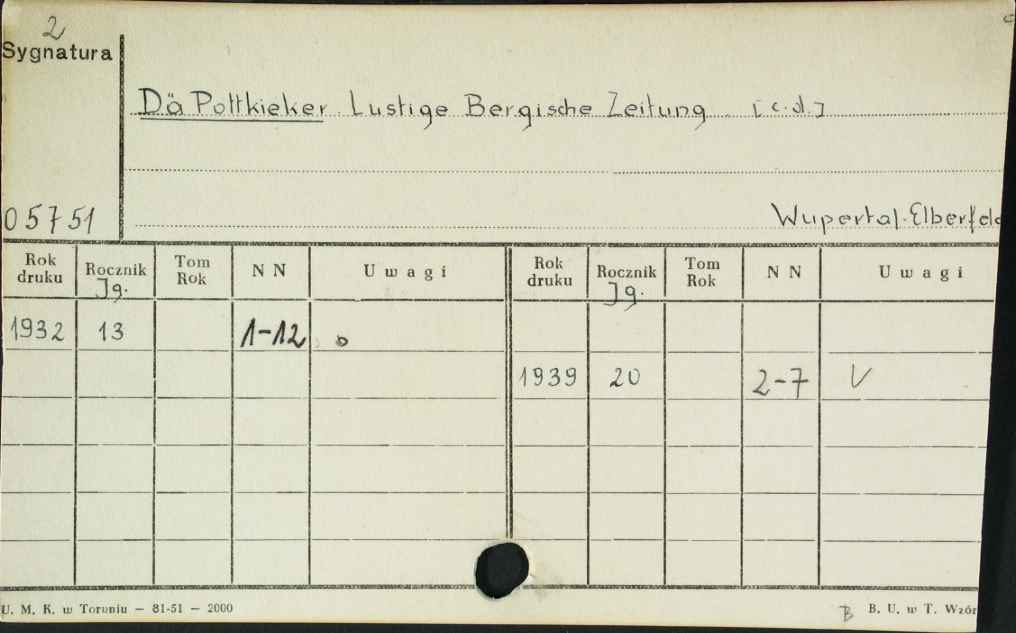 2
Sygnatura
Dä Pottkieker. Lustige Bergische Zeitung. [c.d.]
05751
Wupertal-Elberfeld
Rok druku Rocznik Jg. Tom Rok N N Uwagi Rok druku Rocznik Jg. Tom Rok N N Uwagi
1932 13 1-12 o
1939 20 2-7 V
U. M. K. w Toruniu — 81-51 — 2000
B B. U. w T. Wzór